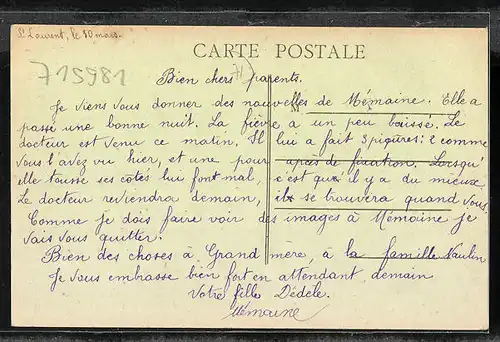 St Laurent, le 10 mars.
CARTE POSTALE
715981
Bien chers parents.
Je viens vous donner des nouvelles de Mémaine. Elle a
passé une bonne nuit. La fièvre a un peu baissé. Le
docteur est venu ce matin. Il lui a fait 3 piqûres: 2 comme
vous l'avez vu hier, et une pour
elle tousse ses côtés lui font mal, c'est que il y a du mieux.
Le docteur reviendra demain, il se trouvera quand vous.
Comme je dois faire voir des images à Mémaine je
vais vous quitter.
Bien des choses à Grand mère, à la famille Naulin
Je vous embrasse bien fort en attendant demain
Votre fille Dédèle.
Mémaine